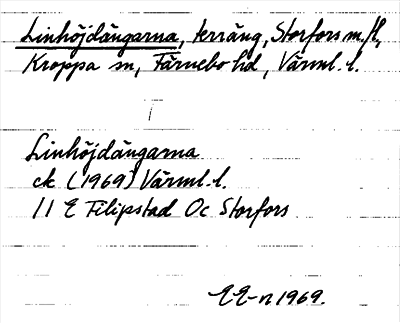 Linhöjdängarna, terräng, Storfors m.fl,
Kroppa sn, Färnebo hd, Värml. l.
Linhöjdängarna
ek (1969) Värml. l.
11 E Filipstad Oc Storfors
EE-n 1969.